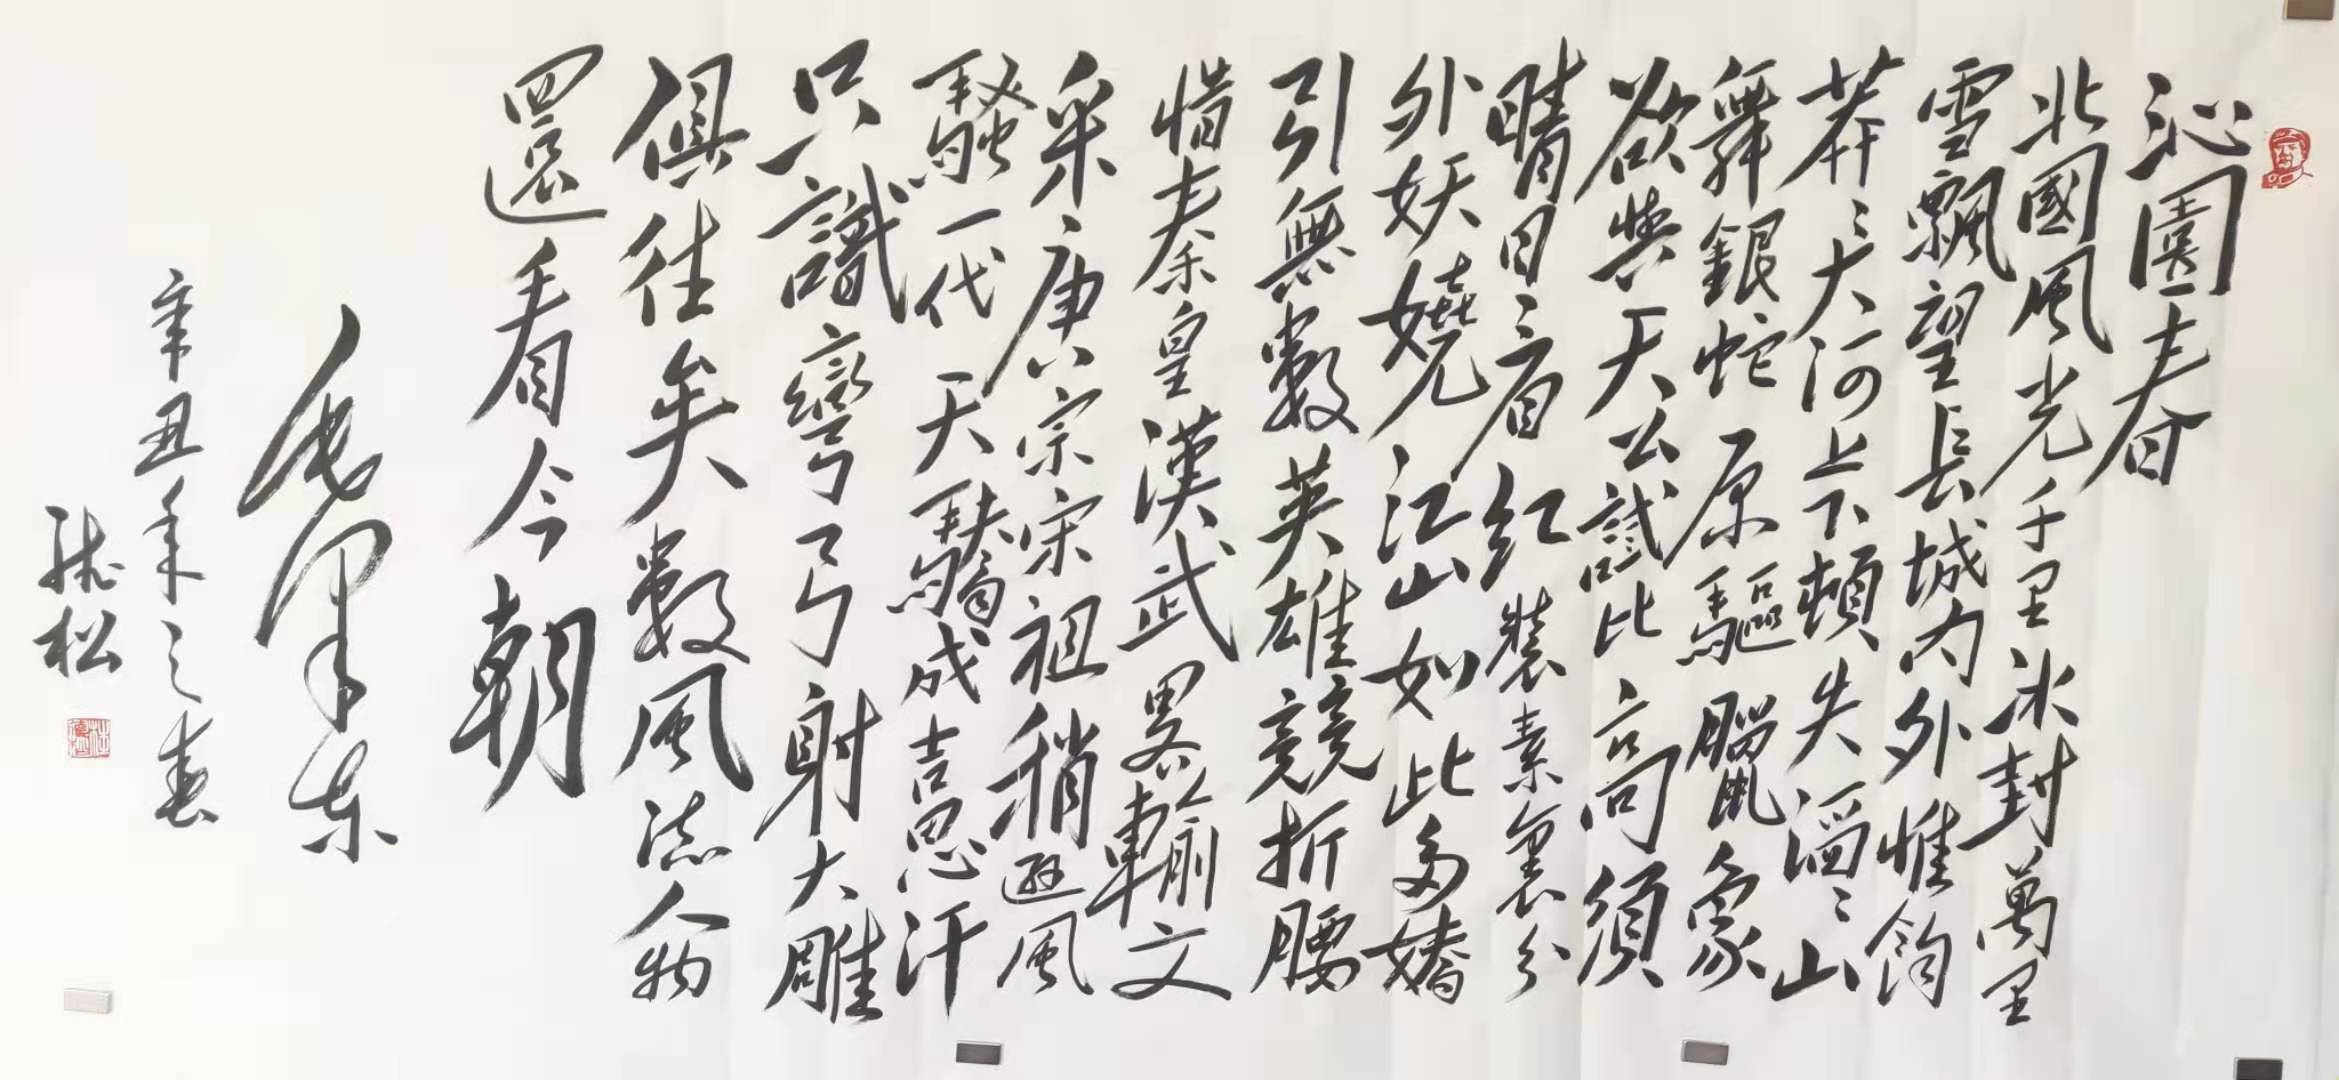 沁園春
北國風光千里冰封萬里
雪飄望長城内外惟餘
莽〻大河上下頓失滔〻山
舞銀蛇原驅臘象
欲與天公試比高須
晴日看紅裝素裹分
外妖嬈江山如此多嬌
引無數英雄競折腰
惜秦皇漢武畧輸文
采唐宗宋祖稍遜風
騷一代天驕成吉思汗
只識彎弓射大雕
俱往矣數風流人物
還看今朝
毛澤东
辛丑年之春
松